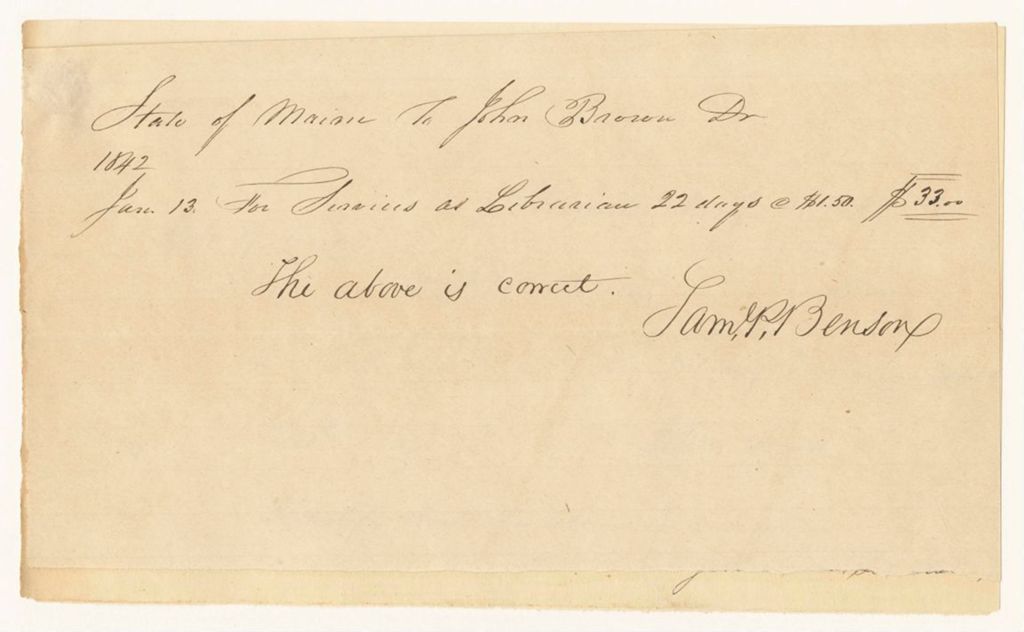 State of Maine To John Brown Dr
1842
Jan. 13. For Services as Librarian 22 days @ $1.50. $33.00
The above is correct.
Saml. P. Benson